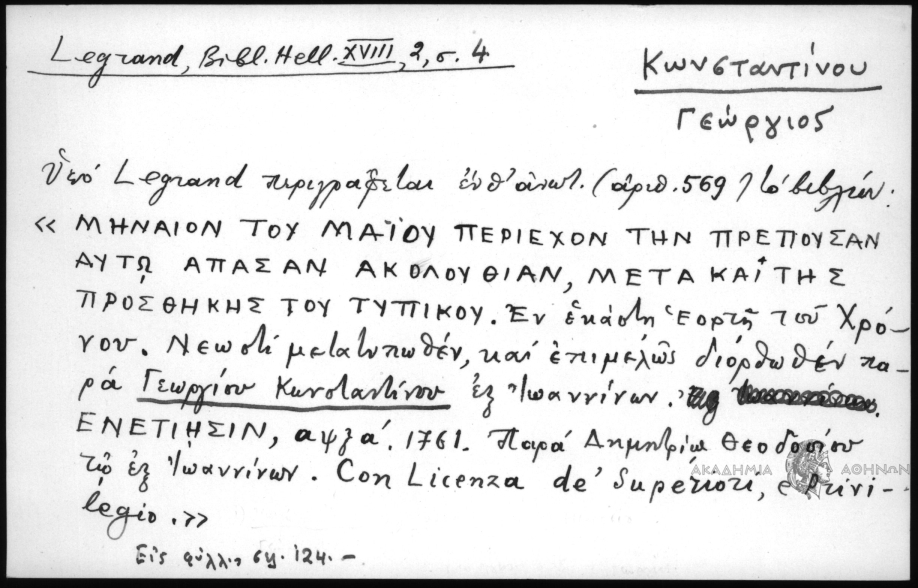 Legrand, Bibl. Hell. XVIII, 2, σ. 4
Κωνσταντίνου
Γεώργιος
Ὑπό Legrand περιγράφεται ἐνθ' ἀνωτ. (ἀριθ. 569) τό βιβλίον:
« ΜΗΝΑΙΟΝ ΤΟΥ ΜΑΪΟΥ ΠΕΡΙΕΧΟΝ ΤΗΝ ΠΡΕΠΟΥΣΑΝ
ΑΥΤῼ ΑΠΑΣΑΝ ΑΚΟΛΟΥΘΙΑΝ, ΜΕΤΑ ΚΑΙ ΤΗΣ
ΠΡΟΣΘΗΚΗΣ ΤΟΥ ΤΥΠΙΚΟΥ. Ἐν ἑκάστῃ Ἑορτῇ τοῦ Χρό-
νου. Νεωστί μετατυπωθέν, καί ἐπιμελῶς διορθωθέν πα-
ρά Γεωργίου Κωνσταντίνου ἐξ Ἰωαννίνων.
ΕΝΕΤΙΗΣΙΝ, αψξα΄. 1761. Παρά Δημητρίῳ Θεοδοσίου
τῷ ἐξ Ἰωαννίνων. Con Licenza de' Superiori, e Privi-
legio.»
Εἰς φύλλ. σχ. 124. –
ΑΚΑΔΗΜΙΑ ΑΘΗΝΩΝ